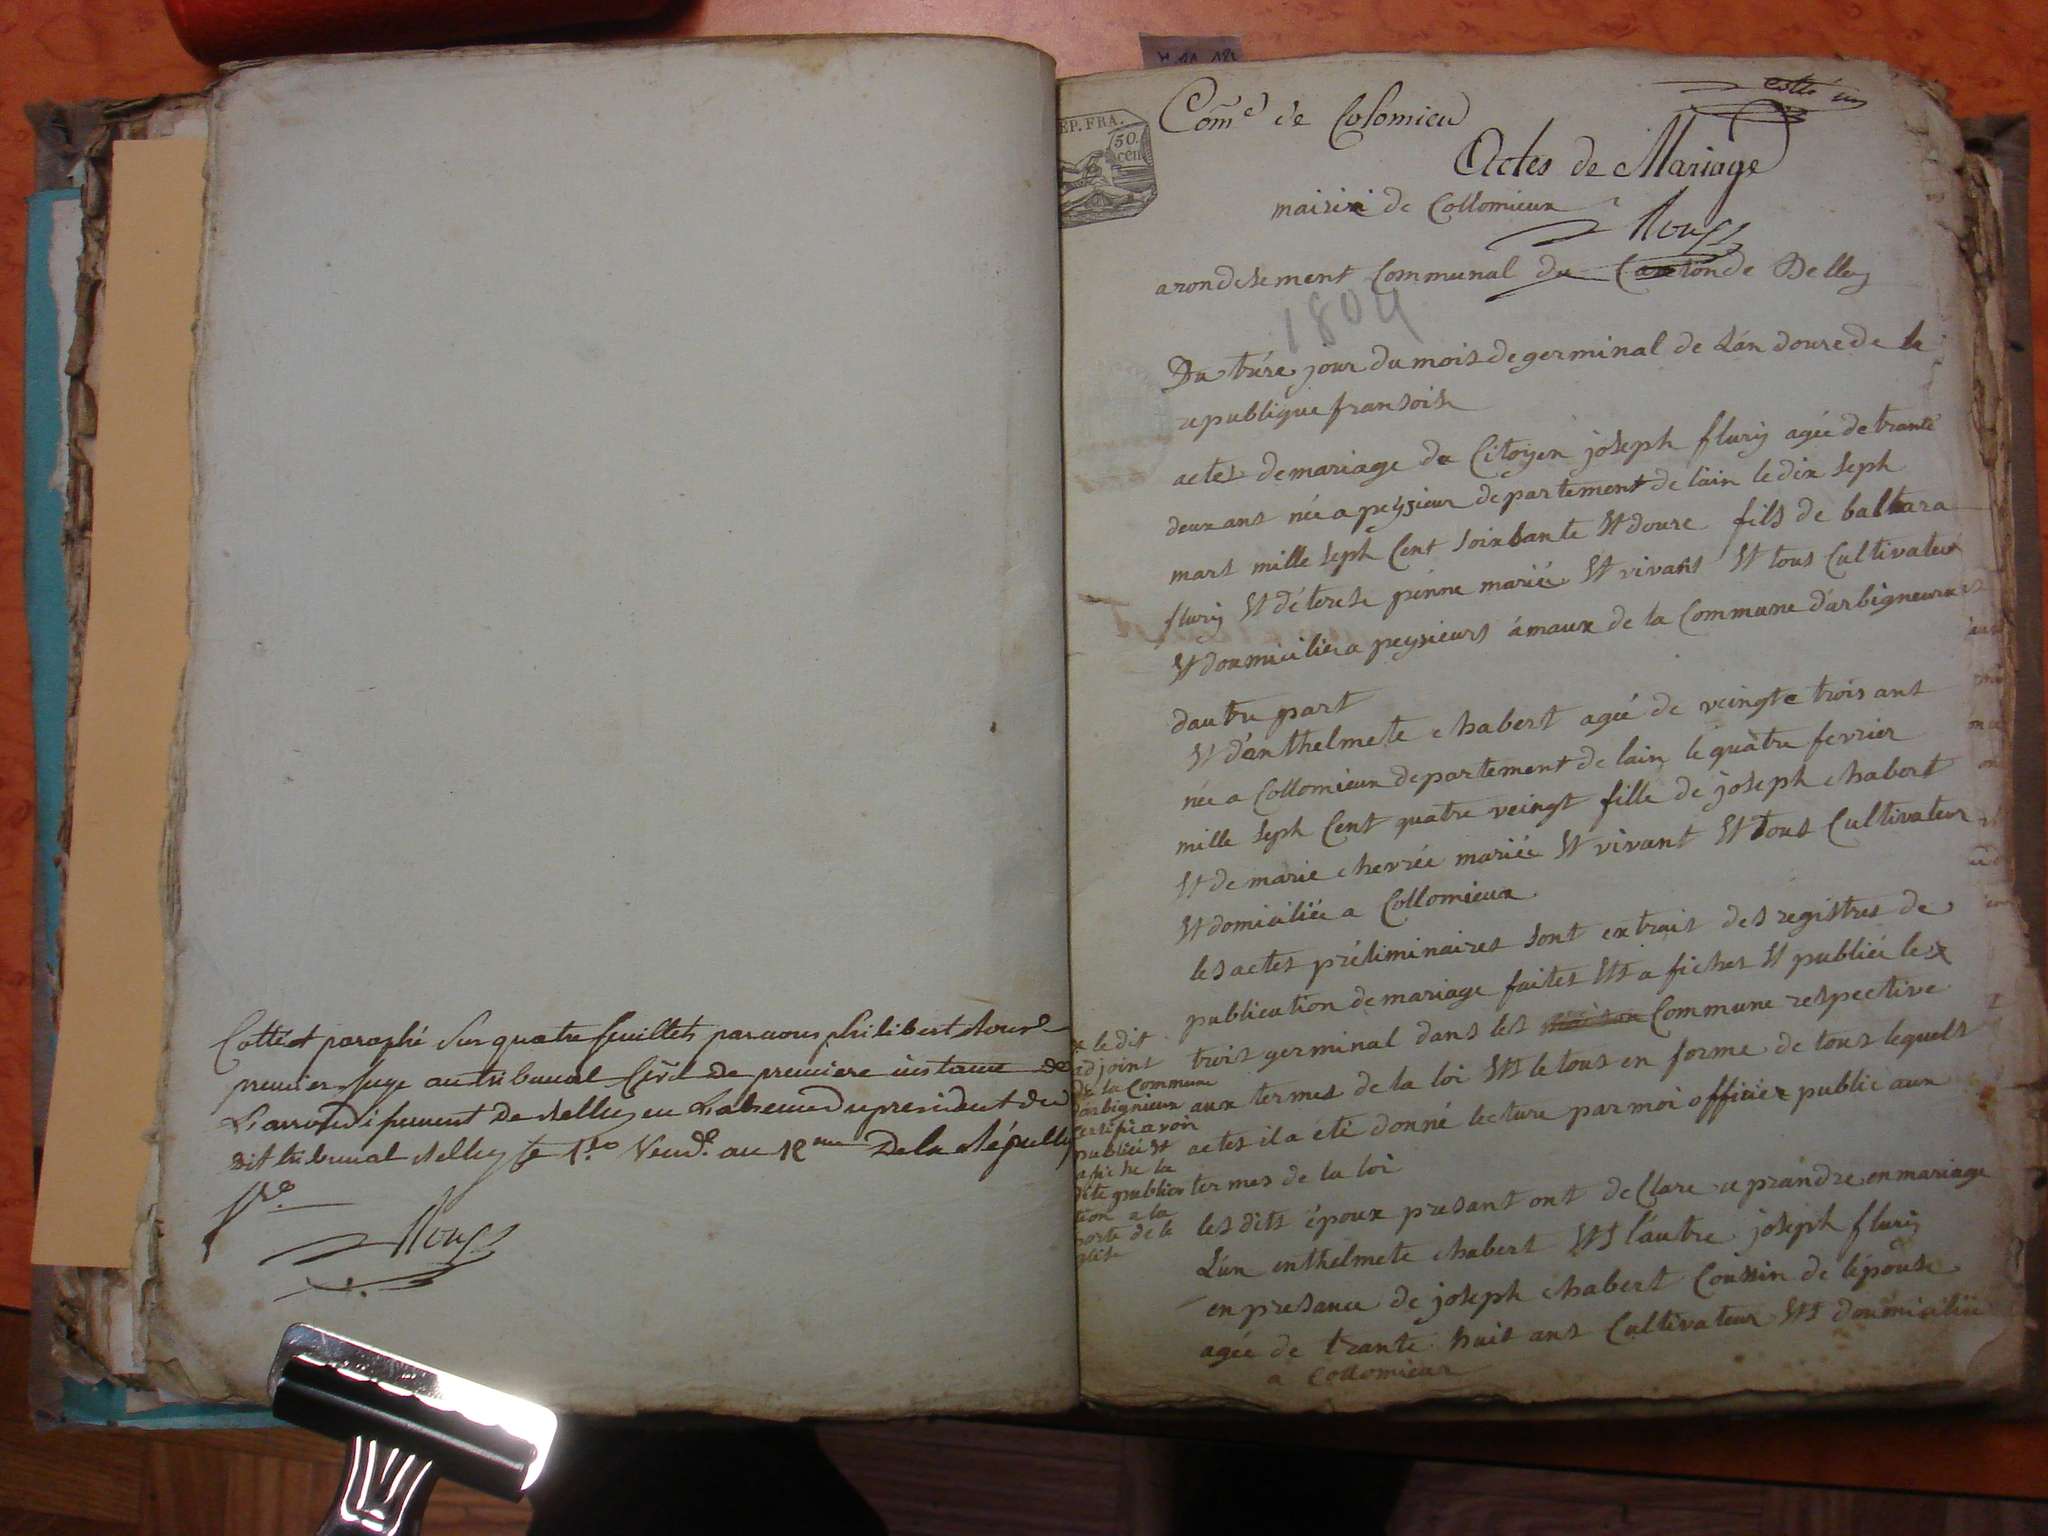 Cotté et paraphé Sur quatre feuillets par nous philibert Roux
premier Juge au tribunal Civil de premiere instance de
L'arrondissement de Belley en L'absence du president du
dit tribunal Belley le 1er Vend.re an 12eme De la Répub
Roux
REP. FRA.
50.
cen
Com.e de Colomieu
cotté un
Actes de Mariage
mairie de Collomieux
Roux
arondisement Communal du Canton de Belley
1804
Du trése jour du mois de germinal de L'an douze de la
republique fransoise
actes de mariage du Citoyen joseph flury agée de trante
deux ans née a peysieux departement de lain le dix seph
mars mille seph Cent soixsante Et douze fils de baltazar
flury Et de terese penne mariée Et vivans Et tous Cultivateur
Et doumiciliée a peysieurs amaux de la Commune darbigneux
dautre part
Et d'anthelmete chabert agée de veingte trois ans
née a Collomieux departement de lain le quatre fevrier
mille seph Cent quatre veingt fille de joseph chabert
Et de marie chevrée mariée Et vivant Et tous Cultivateur
Et domiciliée a Collomieux
les actes préliminaires sont extrait des registres de
publication de mariage faites Et a fiches Et publiée le x
trois germinal dans les Commune respective
aux termes de la loi Et le tous en forme de tous lequels
actes il a été donné lecture par moi officier public aux
termes de la loi
x le dit
adjoint
de la Commune
darbignieux
certifi avoir
publiée Et
afiche la
dite publica
tion a la
porte de le
glise
les dits époux presant ont de Clare a prandre en mariage
L'un enthelmete chabert Et l'autre joseph flury
en presance de joseph chabert Coussin de l'épouse
agée de trante huit ans Cultivateur Et doumiciliée
a Collomieux